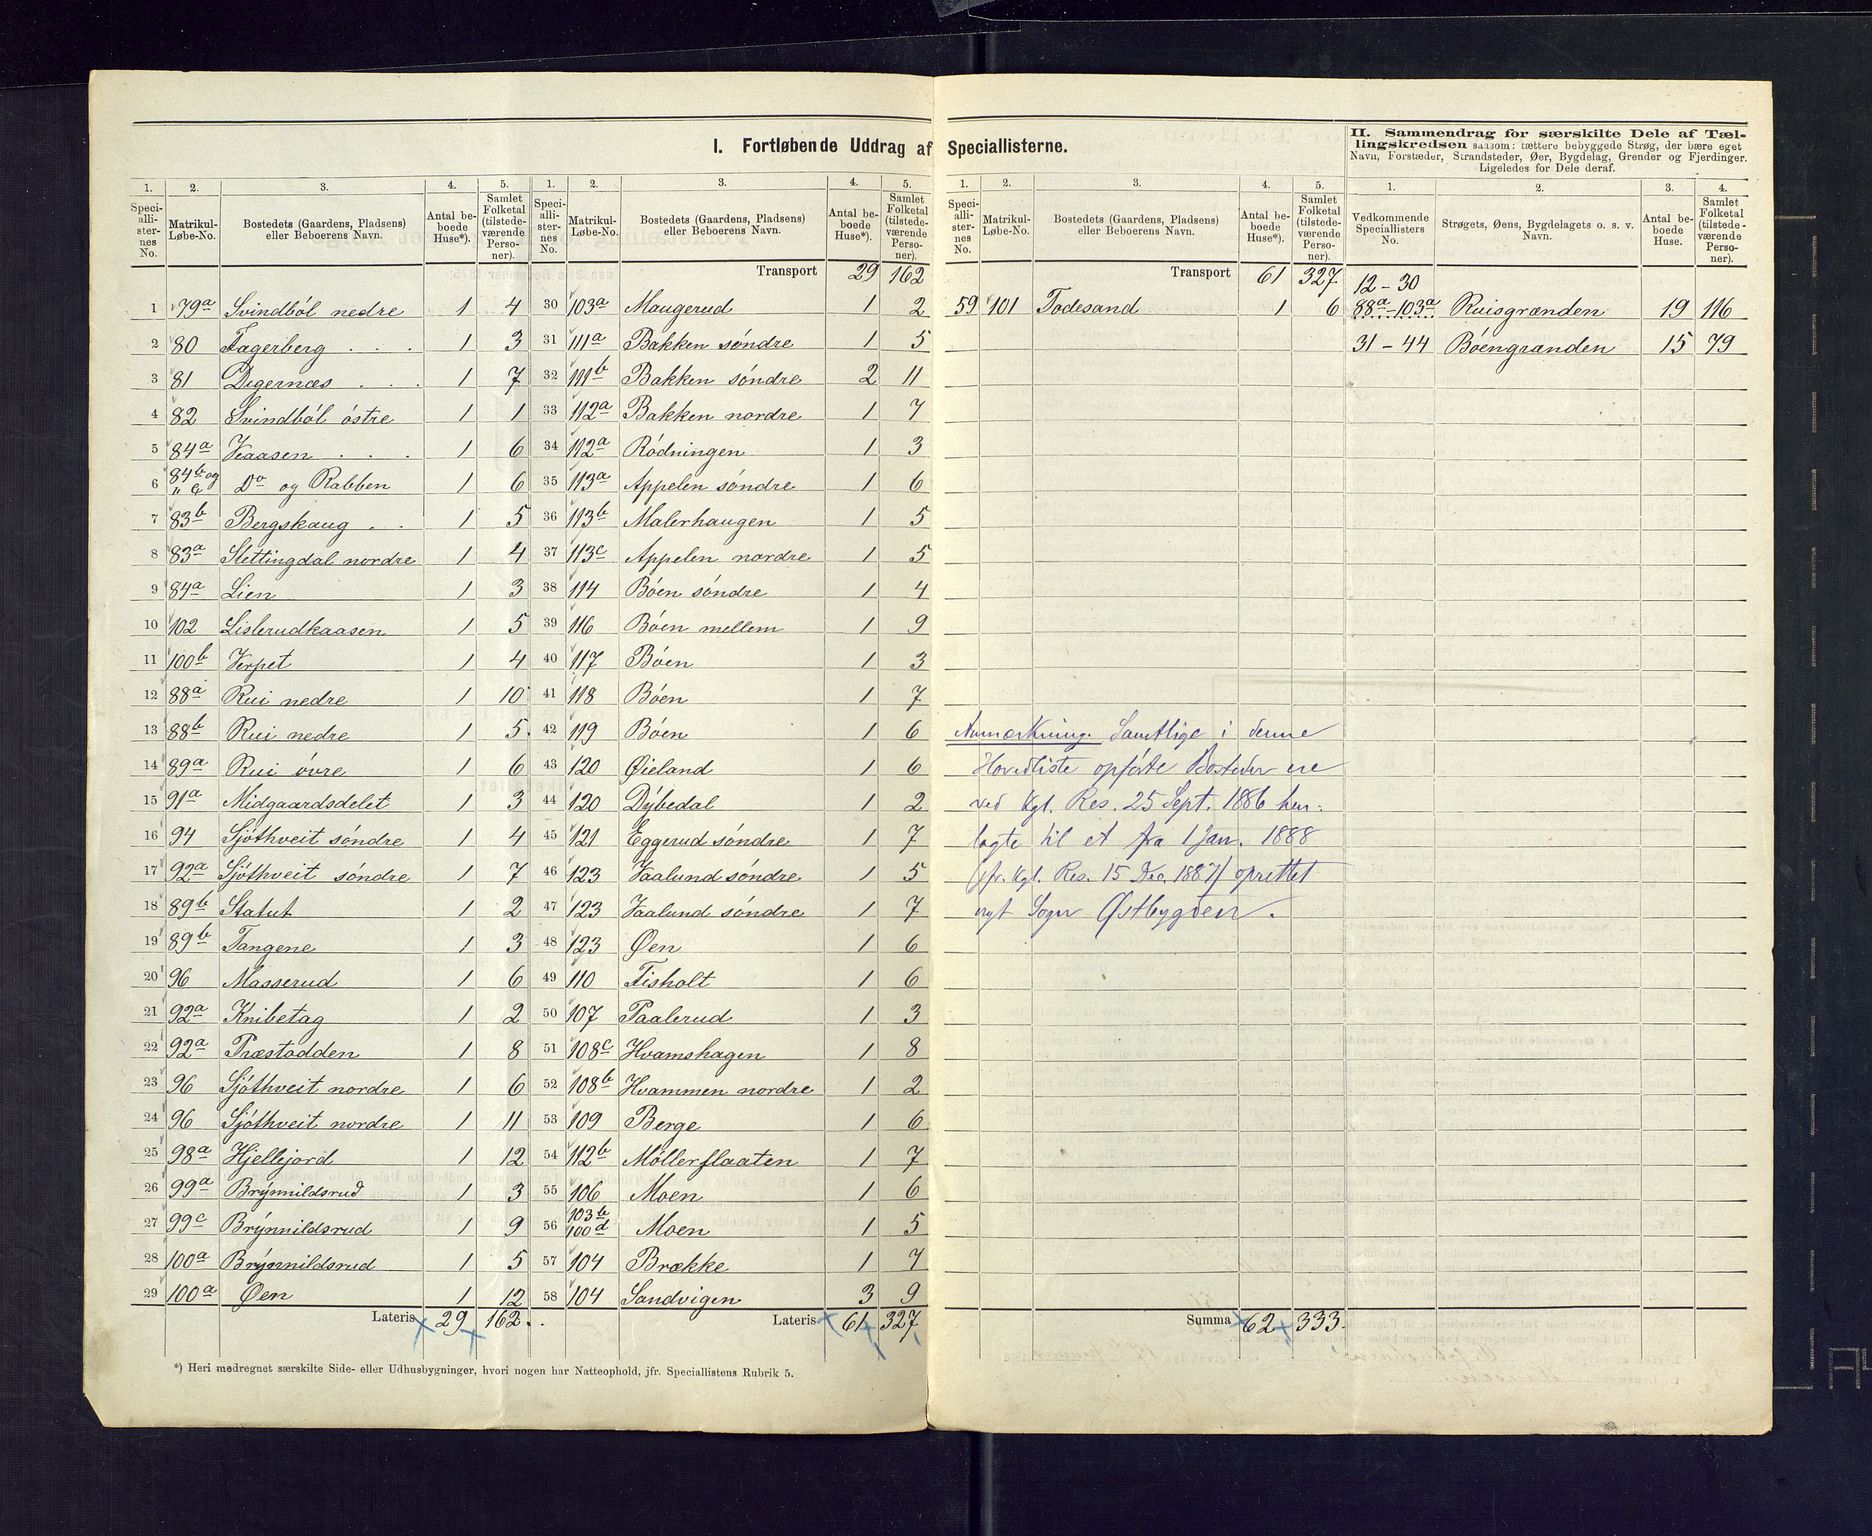 I. Fortløbende Uddrag af Speciallisterne.
II. Sammendrag for særskilte Dele af Tæl-
lingskredsen saasom: tættere bebyggede Strøg, der bære eget
Navn, Forstæder, Strandsteder, Øer, Bygdelag, Grender og Fjerdinger.
Ligeledes for Dele deraf.
1. 2. 3. 4. 5.
Speciallisternes No. Matrikul-Løbe-No. Bostedets (Gaardens, Pladsens) eller Beboerens Navn. Antal beboede Huse*). Samlet Folketal (tilstedeværende Personer).
1 79a Svindból nedre 1 4
2 80 Fagerberg . . . 1 3
3 81 Digernæs . . . 1 7
4 82 Svindból óstre 1 1
5 84a Kaasen . . . 1 6
6 84b og " c Do og Rabben 1 6
7 83b Bergskaug . . 1 5
8 83a Slettingdal nordre 1 4
9 84a Lien 1 3
10 102 Lislerudkaasen 1 5
11 100b Verpet 1 4
12 88a Rui nedre 1 10
13 88b Rui nedre 1 5
14 89a Rui óvre 1 6
15 91a Midgaardsdelet 1 3
16 94 Sjóthveit sóndre 1 4
17 92a Sjóthveit sóndre 1 7
18 89b Statut 1 2
19 89b Tangene 1 3
20 96 Masserud 1 6
21 92a Knibetag 1 2
22 92a Præstodden 1 8
23 96 Sjóthveit nordre 1 6
24 96 Sjóthveit nordre 1 11
25 98a Hjellejord 1 12
26 99a Brynnildsrud 1 3
27 99c Brynnildsrud 1 9
28 100a Brynnildsrud 1 5
29 100a Øen 1 12
Lateris 29 162
*) Heri medregnet særskilte Side- eller Udhusbygninger, hvori nogen har Natteophold, jfr. Speciallistens Rubrik 5.
1. 2. 3. 4. 5.
Speciallisternes No. Matrikul-Løbe-No. Bostedets (Gaardens, Pladsens) eller Beboerens Navn. Antal beboede Huse*). Samlet Folketal (tilstedeværende Personer).
Transport 29 162
30 103a Maugerud 1 2
31 111a Bakken sóndre 1 5
32 111b Bakken sóndre 2 11
33 112a Bakken nordre 1 7
34 112a Ródningen 1 3
35 113a Appelen sóndre 1 6
36 113b Malerhaugen 1 5
37 113c Appelen nordre 1 5
38 114 Bóen sóndre 1 4
39 116 Bóen mellem 1 9
40 117 Bóen 1 3
41 118 Bóen 1 7
42 119 Bóen 1 6
43 120 Øieland 1 6
44 120 Dybedal 1 2
45 121 Eggerud sóndre 1 7
46 123 Jaalund sóndre 1 5
47 123 Jaalund sóndre 1 7
48 123 Øen 1 6
49 110 Fisholt 1 6
50 107 Paalerud 1 3
51 108c Hvamshagen 1 8
52 108b Hvammen nordre 1 2
53 109 Berge 1 6
54 112b Móllerflaaten 1 7
55 106 Moen 1 6
56 103b 100d Moen 1 5
57 104 Brække 1 7
58 104 Sandvigen 3 9
Lateris 61 327
1. 2. 3. 4. 5.
Speciallisternes No. Matrikul-Løbe-No. Bostedets (Gaardens, Pladsens) eller Beboerens Navn. Antal beboede Huse*). Samlet Folketal (tilstedeværende Personer).
Transport 61 327
59 101 Todesand 1 6
Anmærkning. Samtlige i denne
Hovedliste opførte Bosteder ere
ved Kgl. Res. 25 Sept. 1886 hen-
lagte til et fra 1 Jan. 1888
(jfr. Kgl. Res. 15 Dec. 1887) oprettet
nyt Sogn Østbygden.
Summa 62 333.
1. 2. 3. 4.
Vedkommende Speciallisters No. Strøgets, Øens, Bygdelagets o. s. v. Navn. Antal beboede Huse. Samlet Folketal (tilstedeværende Personer).
12 - 30
88a - 103a Ruisgrænden 19 116
31 - 44 Bóengrænden 15 79